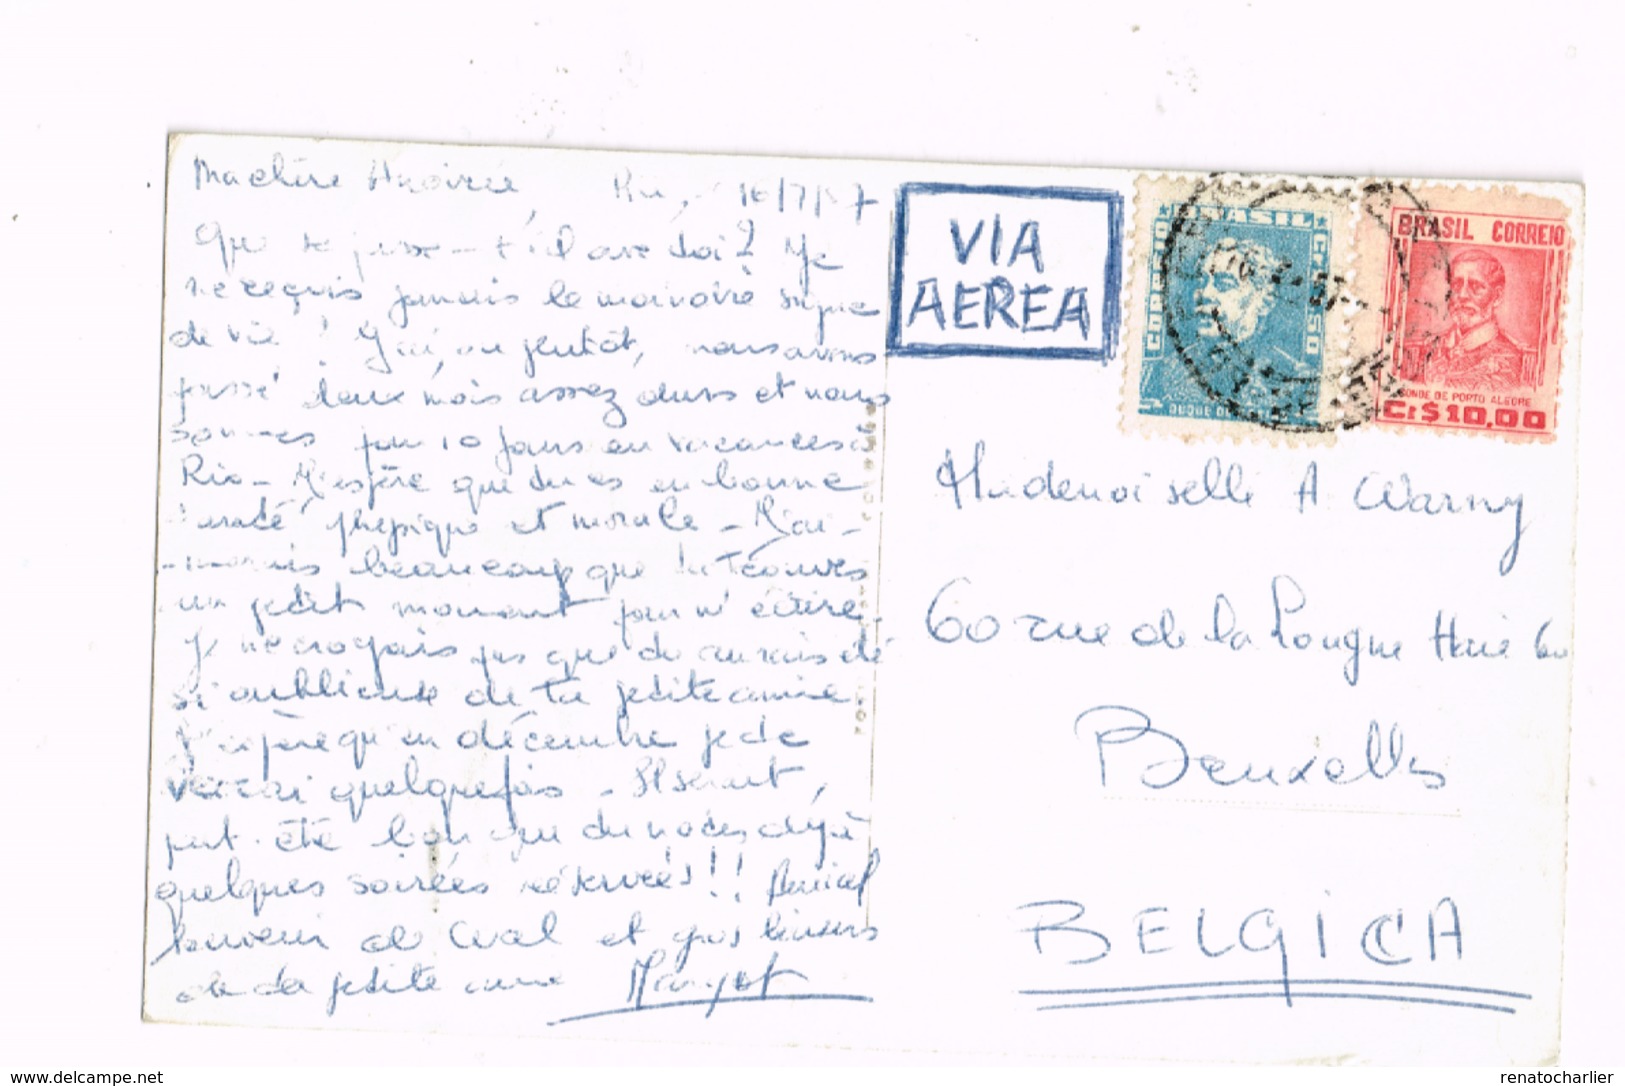 Ma chère Andrée Rio, 16/7/57
Que se passe-t'il avec toi? Je
ne reçois jamais le moindre signe
de vie! J'ai, ou plutôt, nous avons
passé deux mois assez durs et nous
sommes pour 10 jours en vacances à
Rio - J'espère que tu es en bonne
santé physique et morale - J'ai-
-merais beaucoup que tu trouves
un petit moment pour m'écrire.
Je ne croyais pas que tu aurais été
si oublieuse de ta petite amie
J'espère qu'en décembre je te
verrai quelquefois - Il serait,
peut-être bon que tu notes déjà
quelques soirées réservées!! Amical
souvenir de et gros baisers
de ta petite amie Margot
VIA
AEREA
BRASIL
CORREIO
Cr\$ 50
DUQUE
BRASIL CORREIO
CONDE DE PORTO ALEGRE
Cr\$ 10,00
Mademoiselle A Warny
60 rue de la Longue Haie 60
Bruxelles
BELGICA
delcampe.net
renatocharlier